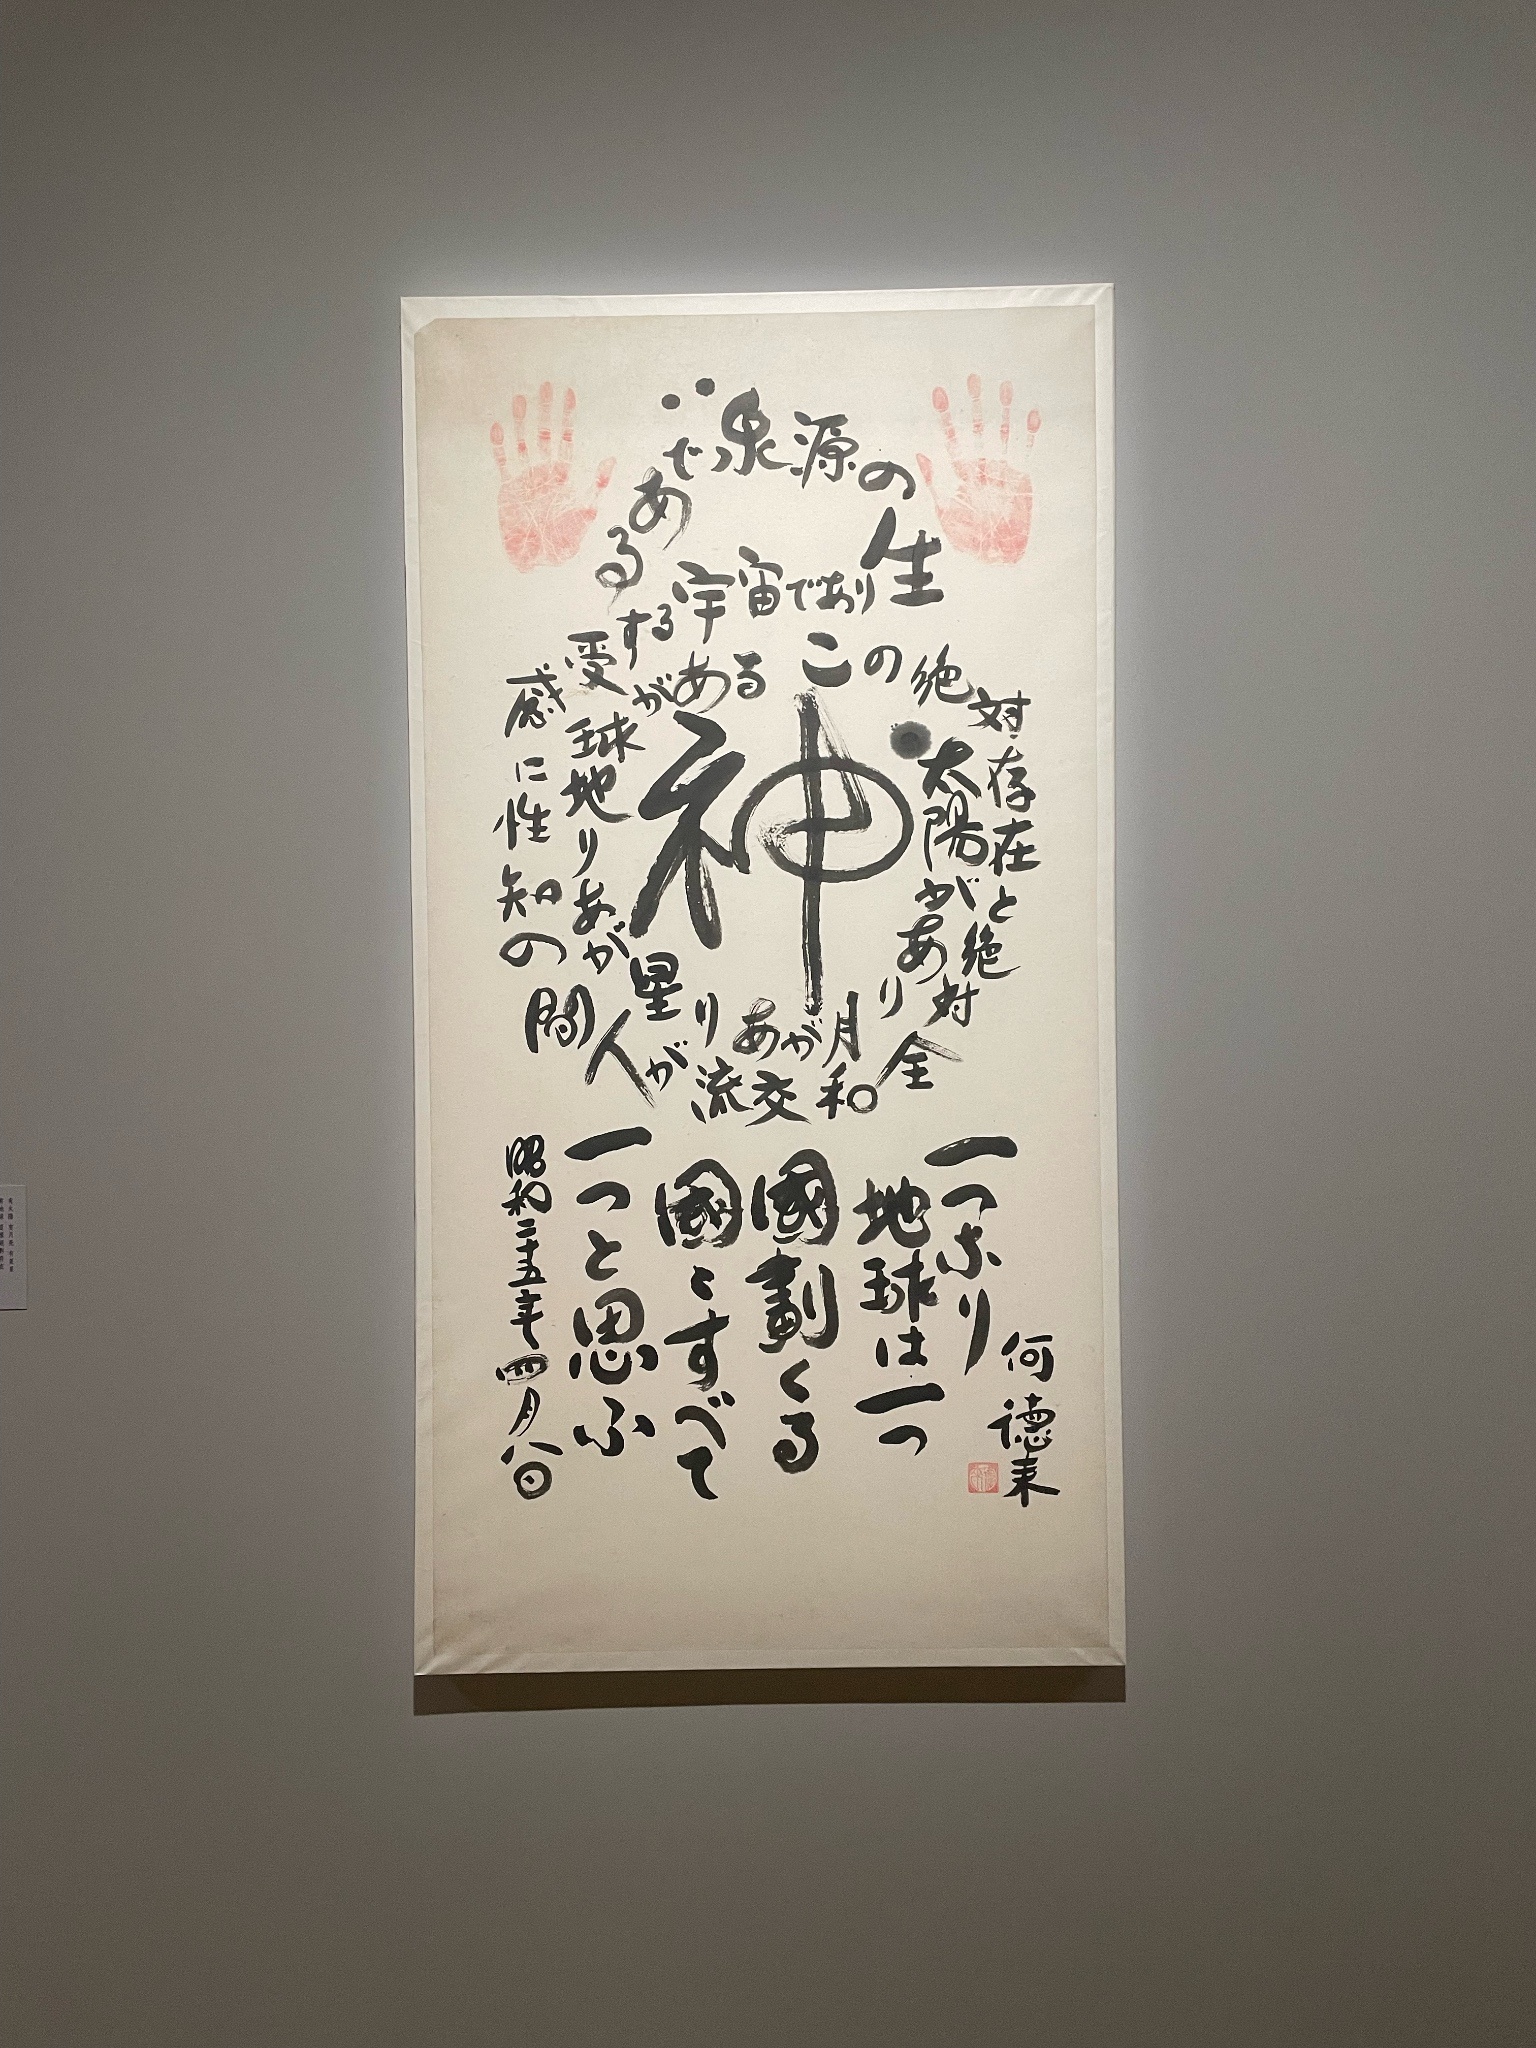 神
太陽があり月があり星があり地球がある
この絶対存在と絶対全和交流が人間の知性に感受する宇宙であり生の源泉である
一つなり
地球は一つ
國劃くる
國々すべて
一つと思ふ
昭和二十五年四月八日
何德来